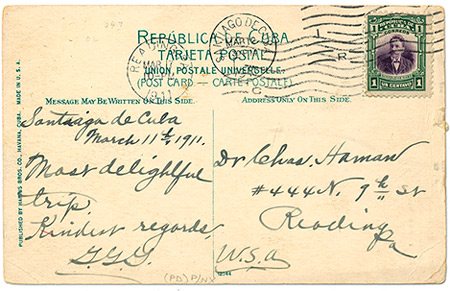 REPÚBLICA DE CUBA.
TARJETA POSTAL
UNION POSTALE UNIVERSELLE.
(POST CARD — CARTE POSTALE)
READING
1911
SANTIAGO DE CUBA
1 1
UN CENTAVO
MESSAGE MAY BE WRITTEN ON THIS SIDE.
ADDRESS ONLY ON THIS SIDE.
PUBLISHED BY HARRIS BROS. CO., HAVANA, CUBA. MADE IN U. S. A.
Santiago de Cuba
March 11th, 1911.
Most delightful
trip
Kindest regards,
Dr Chas. Haman
#444 N. 9th St
Reading
Pa
U.S.A